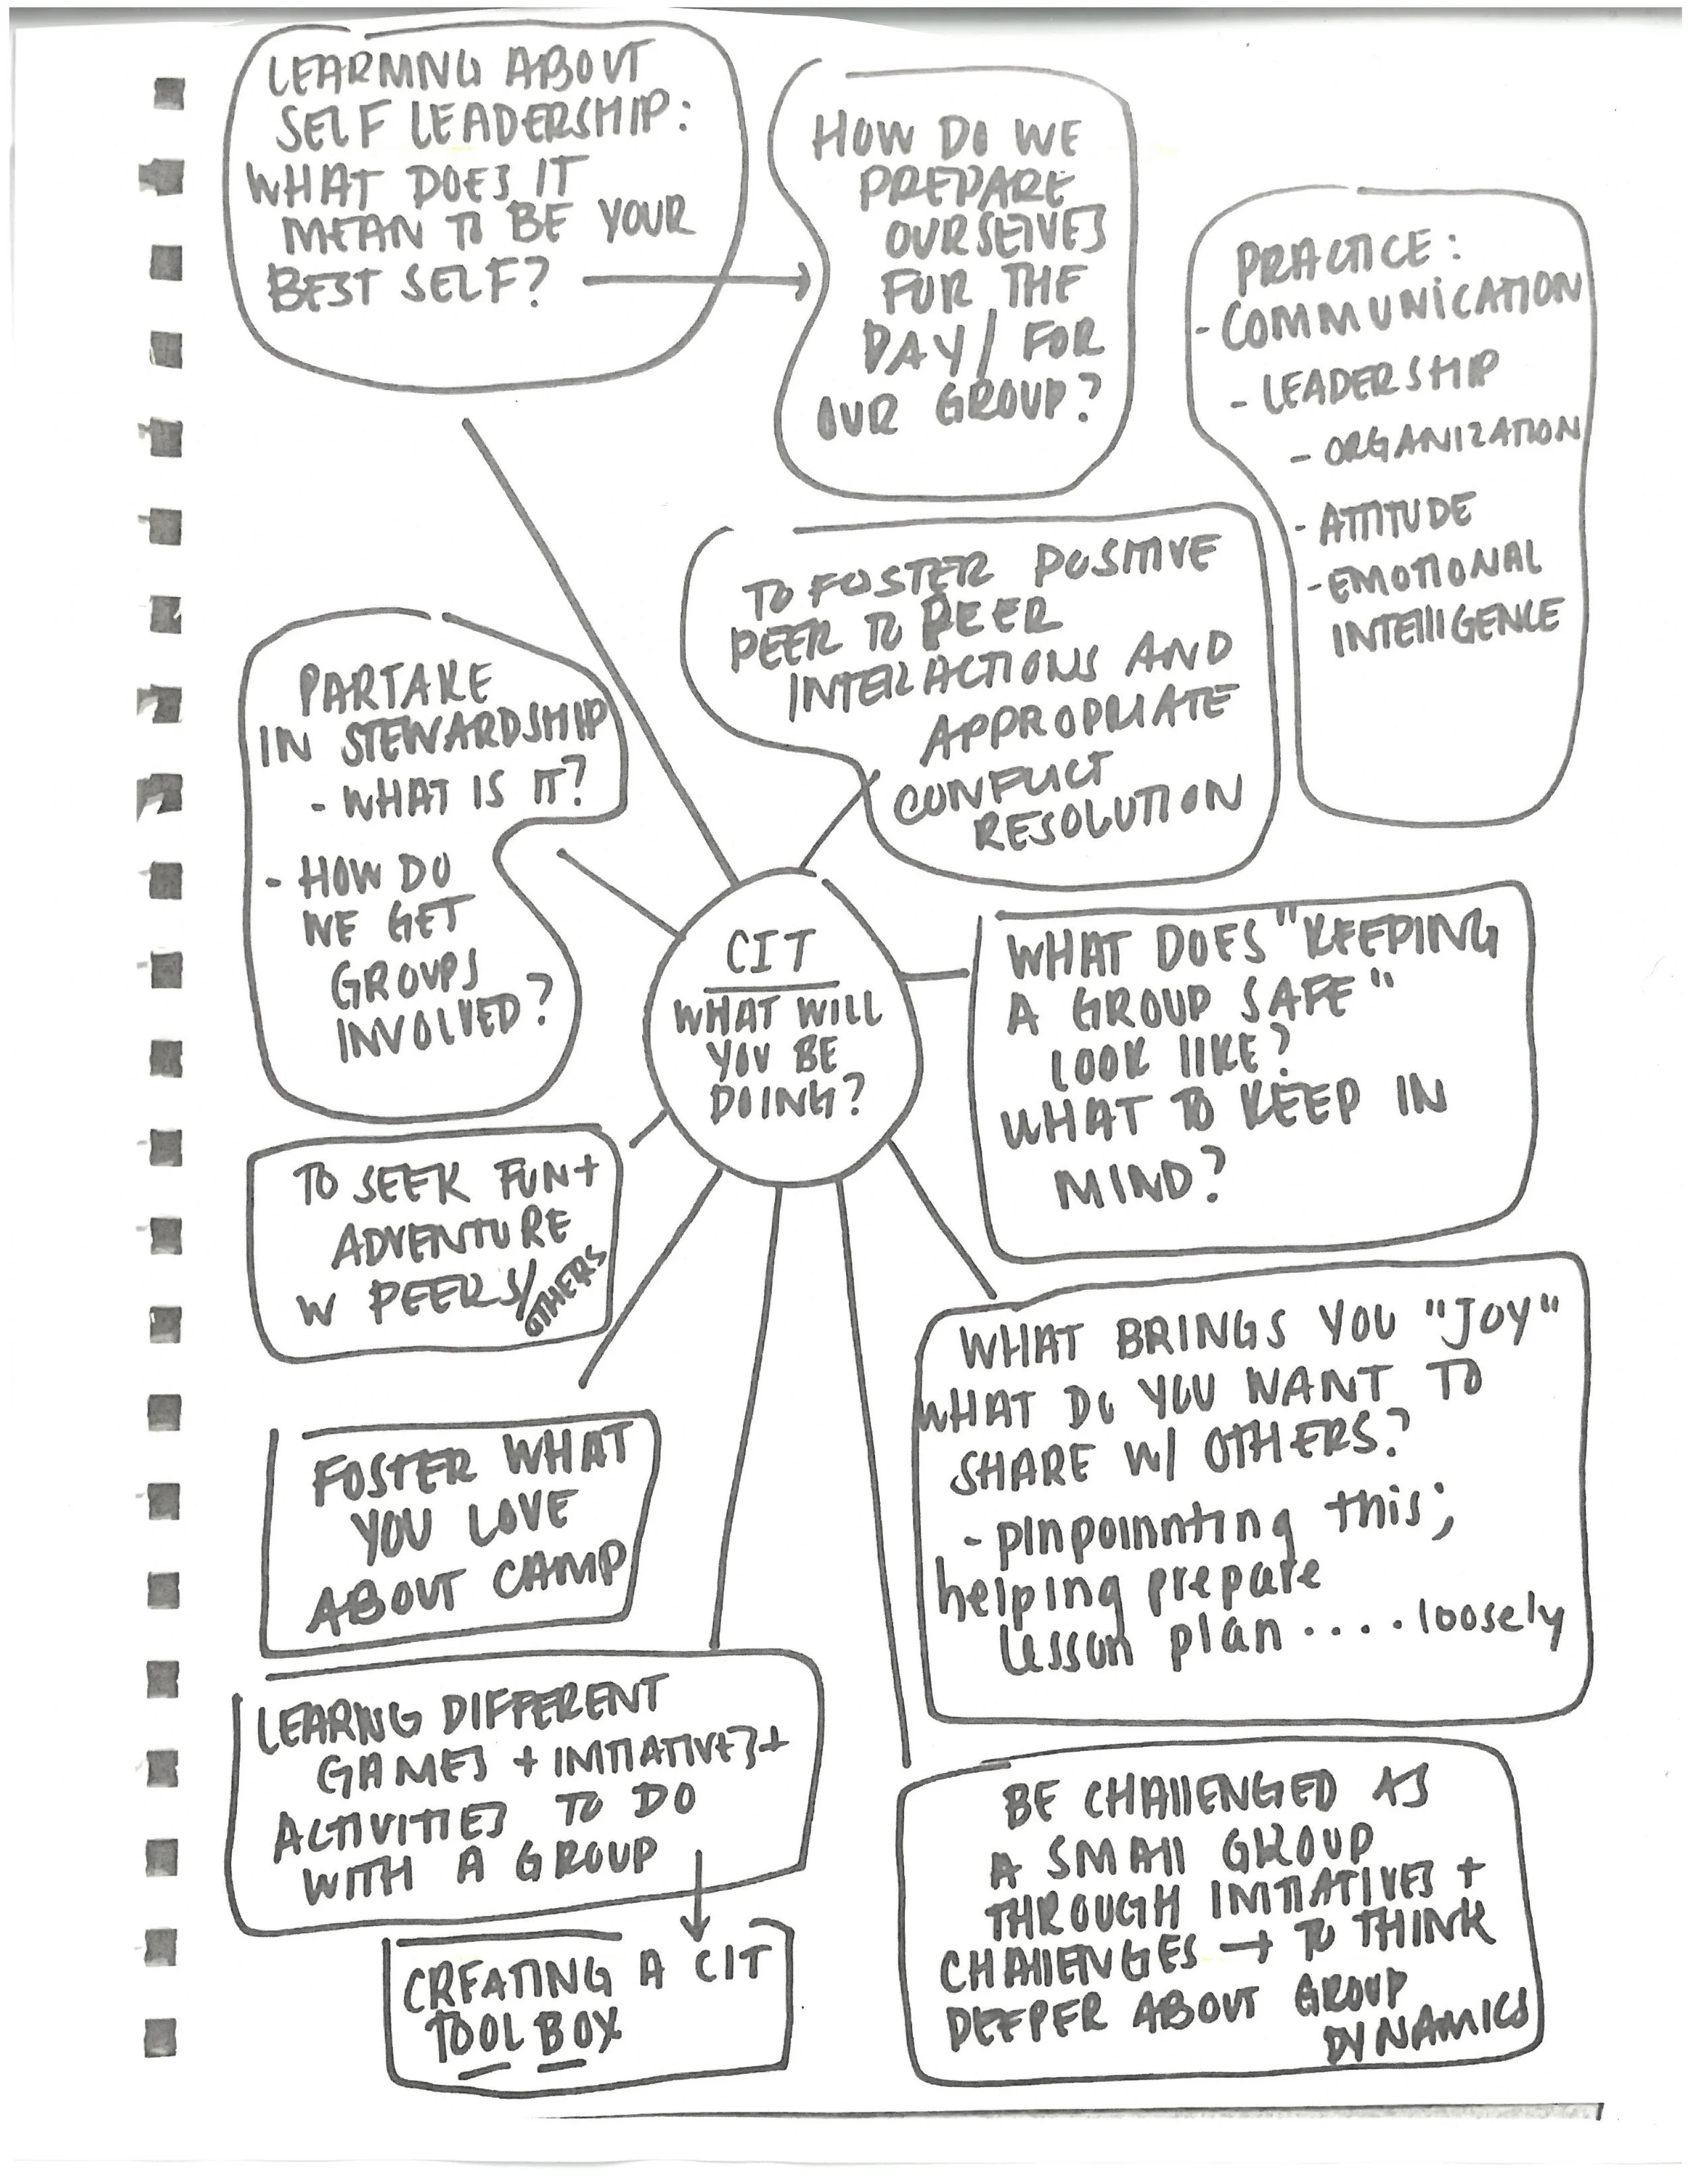 LEARNING ABOUT
SELF LEADERSHIP:
WHAT DOES IT
MEAN TO BE YOUR
BEST SELF?
HOW DO WE
PREPARE
OURSELVES
FOR THE
DAY / FOR
OUR GROUP?
PRACTICE:
- COMMUNICATION
- LEADERSHIP
- ORGANIZATION
- ATTITUDE
- EMOTIONAL
INTELLIGENCE
TO FOSTER POSITIVE
PEER TO PEER
INTERACTIONS AND
APPROPRIATE
CONFLICT
RESOLUTION
PARTAKE
IN STEWARDSHIP
- WHAT IS IT?
- HOW DO
WE GET
GROUPS
INVOLVED?
CIT
WHAT WILL
YOU BE
DOING?
WHAT DOES "KEEPING
A GROUP SAFE"
LOOK LIKE?
WHAT TO KEEP IN
MIND?
TO SEEK FUN +
ADVENTURE
W PEERS/
OTHERS
WHAT BRINGS YOU "JOY"
WHAT DO YOU WANT TO
SHARE W/ OTHERS?
- pinpoinnting this;
helping prepare
lesson plan .... loosely
FOSTER WHAT
YOU LOVE
ABOUT CAMP
LEARNG DIFFERENT
GAMES + INITIATIVES +
ACTIVITIES TO DO
WITH A GROUP
CREATING A CIT
TOOL BOX
BE CHALLENGED AS
A SMALL GROUP
THROUGH INITIATIVES +
CHALLENGES → TO THINK
DEEPER ABOUT GROUP
DYNAMICS